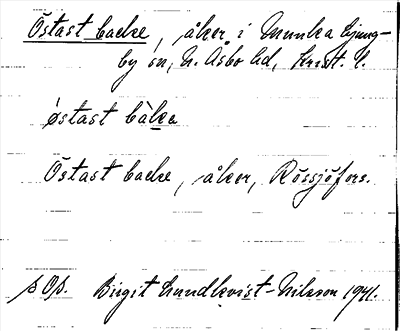 Östast backe, åker i Munka Ljung-
by sn, N. Åsbo hd, Krist. l.
østast bàkə
Östast backe, åker, Rössjöfors.
s Os. Birgit Lundkvist-Nilsson 1941.